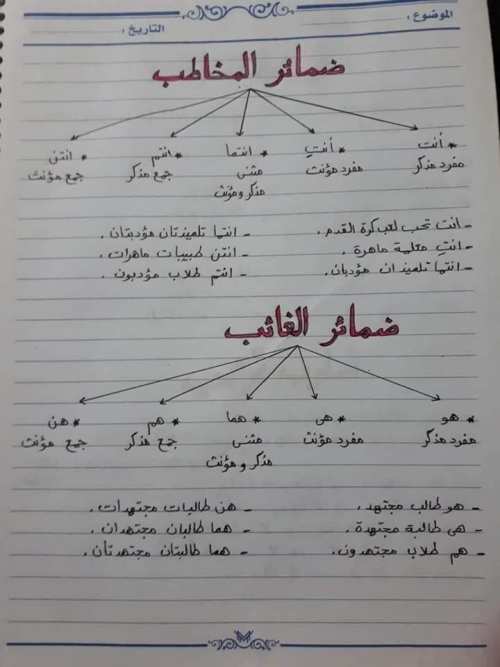 الموضوع :
التاريخ :
ضمائر المخاطب
* أنت * أنتِ * انتما * انتم * انتن
مفرد مذكر مفرد مؤنث مثنى جمع مذكر جمع مؤنث
مذكر ومؤنث
- انت تحب لعب كرة القدم . - انتما تلميذتان مؤدبتان .
- انتِ معلمة ماهرة . - انتن طبيبات ماهرات .
- انتما تلميذان مؤدبان . - انتم طلاب مؤدبون .
ضمائر الغائب
* هو * هى * هما * هم * هن
مفرد مذكر مفرد مؤنث مثنى جمع مذكر جمع مؤنث
مذكر ومؤنث
- هو طالب مجتهد . - هن طالبات مجتهدات .
- هى طالبة مجتهدة . - هما طالبان مجتهدان .
- هم طلاب مجتهدون . - هما طالبتان مجتهدتأن .